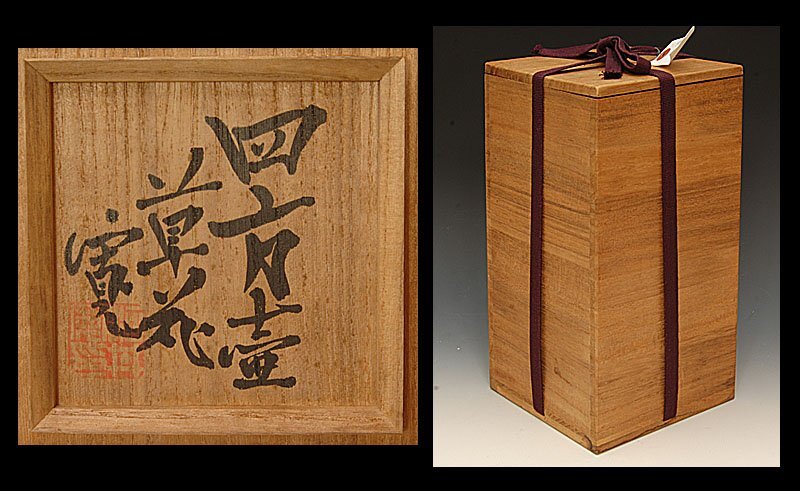 四方壷
草花
寛